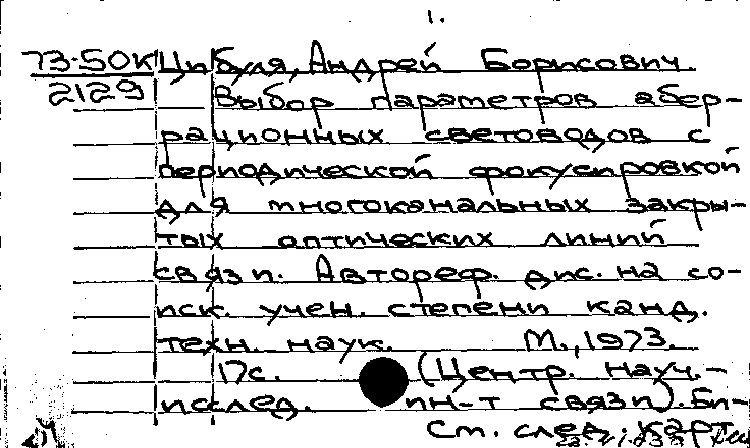 1.
73-50К Цибуля, Андрей Борисович.
2129 Выбор параметров абер-
рационных световодов с
периодической фокусировкой
для многоканальных закры-
тых оптических линий
связи. Автореф. дис. на со-
иск. учен. степени канд.
техн. наук. М., 1973.
17с. (Центр. науч.-
исслед. ин-т связи). Би-
См. след. карт.